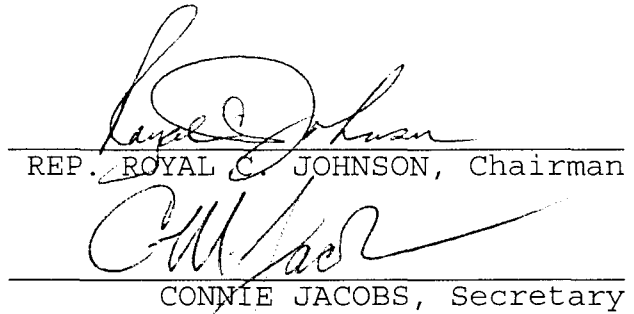 Royal C Johnson
REP. ROYAL C. JOHNSON, Chairman
CM Jacobs
CONNIE JACOBS, Secretary